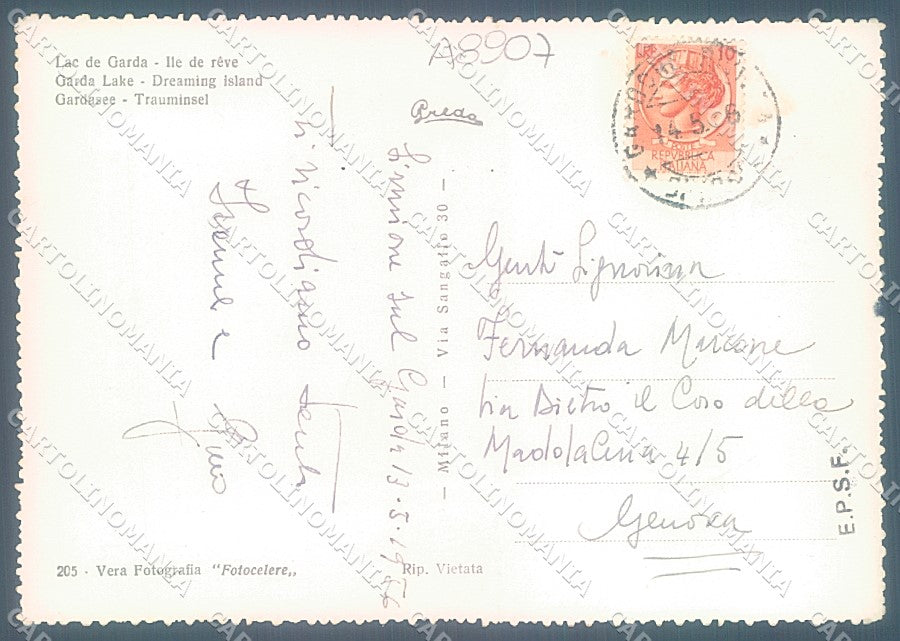 A8907
Lac de Garda - Ile de rêve
Garda Lake - Dreaming island
Gardasee - Trauminsel
Sirmione sul Garda 13.5.1956
Vi ricordiamo tanto
Irene e
Gino
POSTE
REPVBBLICA
ITALIANA
Gent. Signorina
Fernanda Marcone
Via Dietro il Coro della
Maddalena 4/5
Genova
— Milano — Via Sangallo 30 —
E.P.S.F.
205 - Vera Fotografia "Fotocelere„
Rip. Vietata
CARTOLINOMANIA